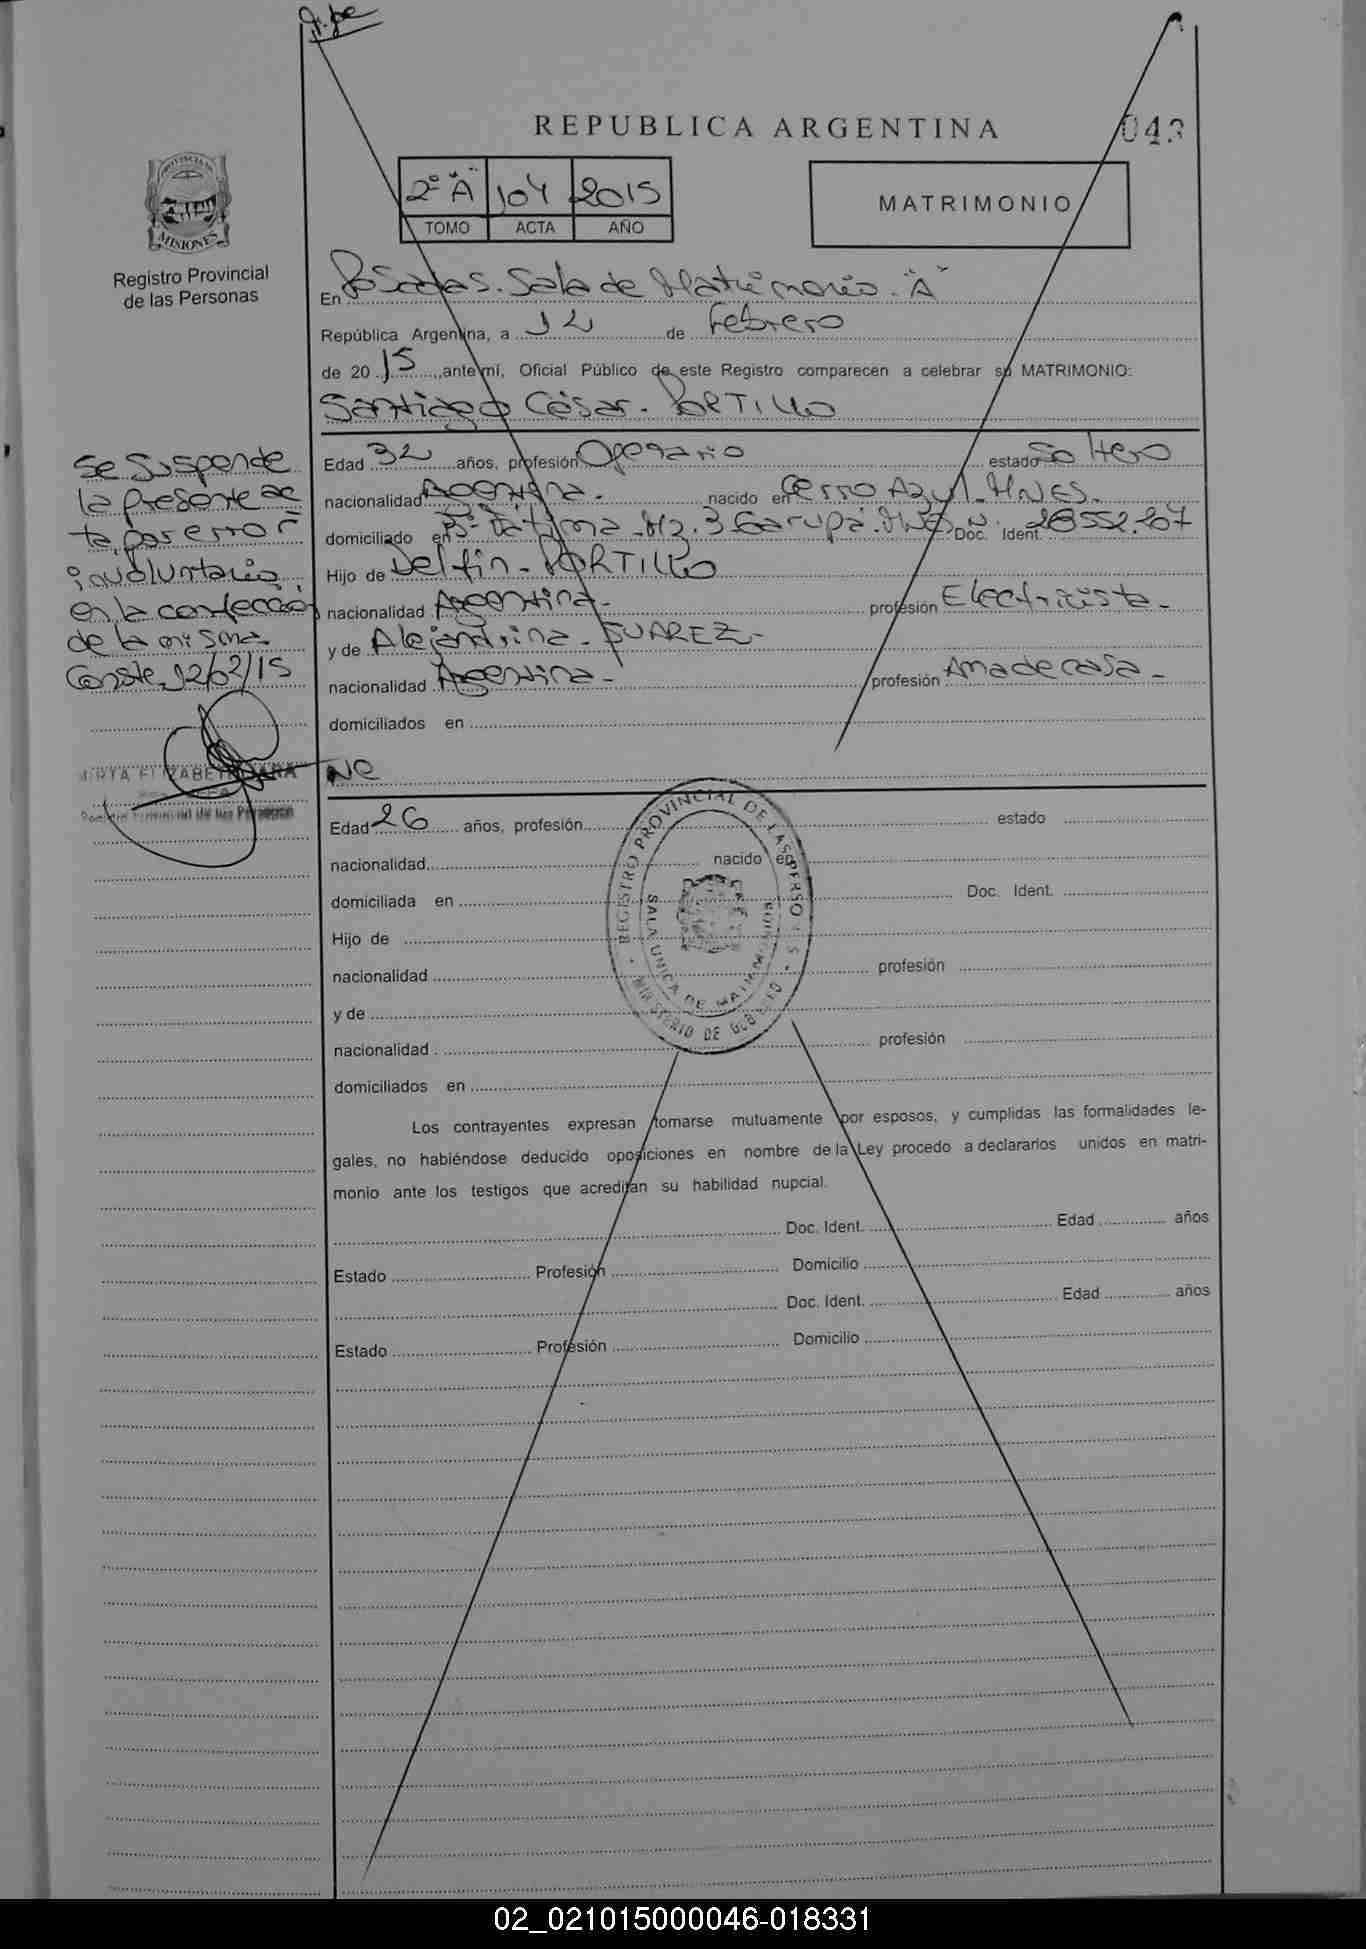 REPUBLICA ARGENTINA
043
PROVINCIA DE
MISIONES
Registro Provincial
de las Personas
2º "A" 104 2015
TOMO ACTA AÑO
MATRIMONIO
En Posadas. Sala de Matrimonio. "A"
República Argentina, a 12 de Febrero
de 20 15 ,ante mí, Oficial Público de este Registro comparecen a celebrar su MATRIMONIO:
Santiago César. PORTILLO
Edad 32 años, profesión Operario estado Soltero
nacionalidad Argentina. nacido en Cerro Azul. Mnes.
domiciliado en Bº Fátima. Mz. 3 Garupá. Mnes Doc. Ident. 28.552.107
Hijo de Delfín. PORTILLO
nacionalidad Argentina. profesión Electricista.
y de Alejandrina. SUAREZ.
nacionalidad Argentina. profesión Ama de casa.
domiciliados en
Ne
Se suspende
la presente ac
ta, por error
involuntario
en la confección
de la misma.
Conste, 12/02/15
Registro Provincial de las Personas
Edad 26 años, profesión estado
nacionalidad nacido en
domiciliada en Doc. Ident.
Hijo de
nacionalidad profesión
y de
nacionalidad profesión
domiciliados en
REGISTRO PROVINCIAL DE LAS PERSONAS
SALA UNICA DE MATRIMONIO
MINISTERIO DE GOBIERNO
Los contrayentes expresan tomarse mutuamente por esposos, y cumplidas las formalidades le-
gales, no habiéndose deducido oposiciones en nombre de la Ley procedo a declararlos unidos en matri-
monio ante los testigos que acreditan su habilidad nupcial.
Doc. Ident. Edad años
Estado Profesión Domicilio
Doc. Ident. Edad años
Estado Profesión Domicilio
02_021015000046-018331